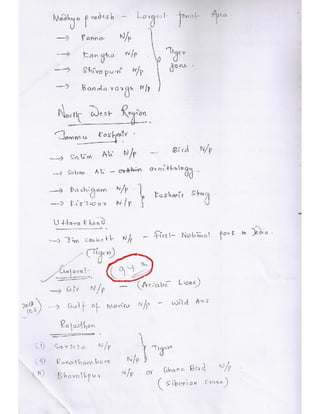 Madhya pradesh - Largest forest Area
→ Panna N/p
→ Kangha N/p
→ Shivapuri N/p
→ Bandavargh N/p
Tiger
zone.
North West Region
Jammu Kashmir.
→ Salim Ali N/p - Bird N/p
→ Salim Ali - ornithology.
→ Dachigam N/p
→ Kistwar N/p
Kashmir Stag
Uttarakhand
→ Jim corbett N/p - first National park in India.
(Tigers)
Gujarat-
→ Gir N/p - (Asiatic Lions)
→ Gulf of Marine N/p - wild Ass
Rajasthan
(i) Sariska N/p
(ii) Ranathambore N/p
Tiger
(iii) Bharathpur N/p or Ghana Bird N/p
(Siberian crane)